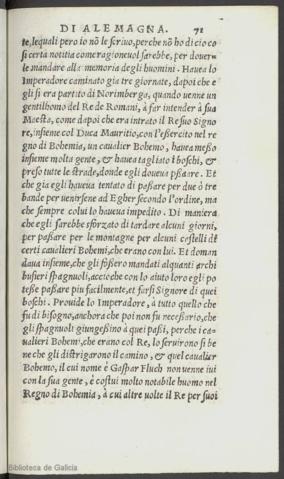 DI ALEMAGNA. 71
te, lequali pero io nõ le scriuo, perche nõ ho di cio co
si certa notitia come ragioneuol sarebbe, per douer-
le mandare alla memoria degli huomini. Hauea lo
Imperadore caminato gia tre giornate, dapoi che e
gli si era partito di Norimberga, quando uenne un
gentilhomo del Re de Romani, à far intender à sua
Maesta, come dapoi che era intrato il Re suo Signo
re, insieme col Duca Mauritio, con l'essercito nel re
gno di Bohemia, un caualier Bohemo, haueа messo
insieme molta gente, & hauea tagliato i boschi, &
preso tutte le strade, donde egli doueua passare. Et
che gia egli haueua tentato di passare per due ò tre
bande per uenirsene ad Egher secondo l'ordine, ma
che sempre colui lo haueua impedito. Di maniera
che egli sarebbe sforzato di tardare alcuni giorni,
per passare per le montagne per alcuni castelli di
certi caualieri Bohemi, che erano con lui. Et doman
daua insieme, che gli fossero mandati alquanti archi
busieri spagnuoli, accioche con lo aiuto loro egli po
tesse passare piu facilmente, et farsi Signore di quei
boschi. Prouide lo Imperadore, à tutto quello che
fu di bisogno, anchora che poi non fu necessario, che
gli spagnuoli giungessino à quei passi, perche i ca-
ualieri Bohemi, che erano col Re, lo seruirono si be
ne che gli distrigarono il camino, & quel caualier
Bohemo, il cui nome è Gaspar Fluch non uenne iui
con la sua gente, è costui molto notabile huomo nel
Regno di Bohemia, à cui altre uolte il Re per suoi
Biblioteca de Galicia